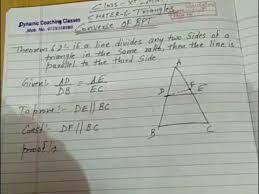 Dynamic Coaching Classes
Class - X
CHAPTER-6 - Triangles
Converse of BPT
Theorem 6.2 :- if a line divides any two sides of a
triangle in the same ratio, then the line is
parallel to the third side
Given:- AD/DB = AE/EC
To prove:- DE || BC
Const:- DF || BC
proof :-
A
D
E
F
B
C